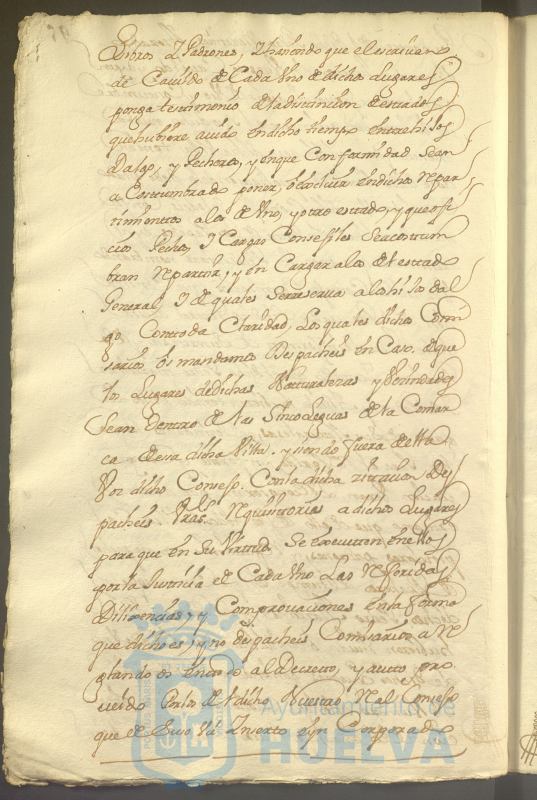 Libros, y Padrones, y haciendo que el escrivano
de Cavildo de Cada Uno de dichos Lugares
ponga testimonio de la distincion de estados
que hubiere avido en dicho tiempo entre hijos
Dalgo, y Pecheros, y en que Conformidad sean
a Costumbrado poner, e incluir en dichos repar
timientos a los de Uno, y otro estado, y que ofi
cios Pechos, y Cargas Consegiles se acostum
bran repartir, y en Cargar a los del estado
General, y de quales se reserva a los hijos dal
go Con toda Claridad, Los quales dichos Comi
sarios os mandamos Despacheis en Caso de que
los Lugares de dichas Naturalezas y Vecindades
sean Dentro de las Sinco Leguas de la Comar
ca de esa dicha Villa, y siendo fuera de ella
Por dicho Consejo Con la dicha citacion Des
pacheis Vras Requisitorias a dichos Lugares
para que en su Virtud Se executen en ellos
por la Justicia de Cada Uno Las referidas
Diligencias, y Comprovaciones en la forma
que dicho es, y no despacheis Comisarios a re
glando os en todo al Decreto, y auto pro
veido Por los del dicho Nuestro Real Consejo
que de Suso Va Inserto e yn Corporado
Ayuntamiento de
HUELVA